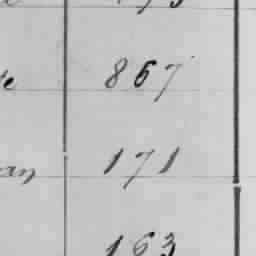 867
an 171
163